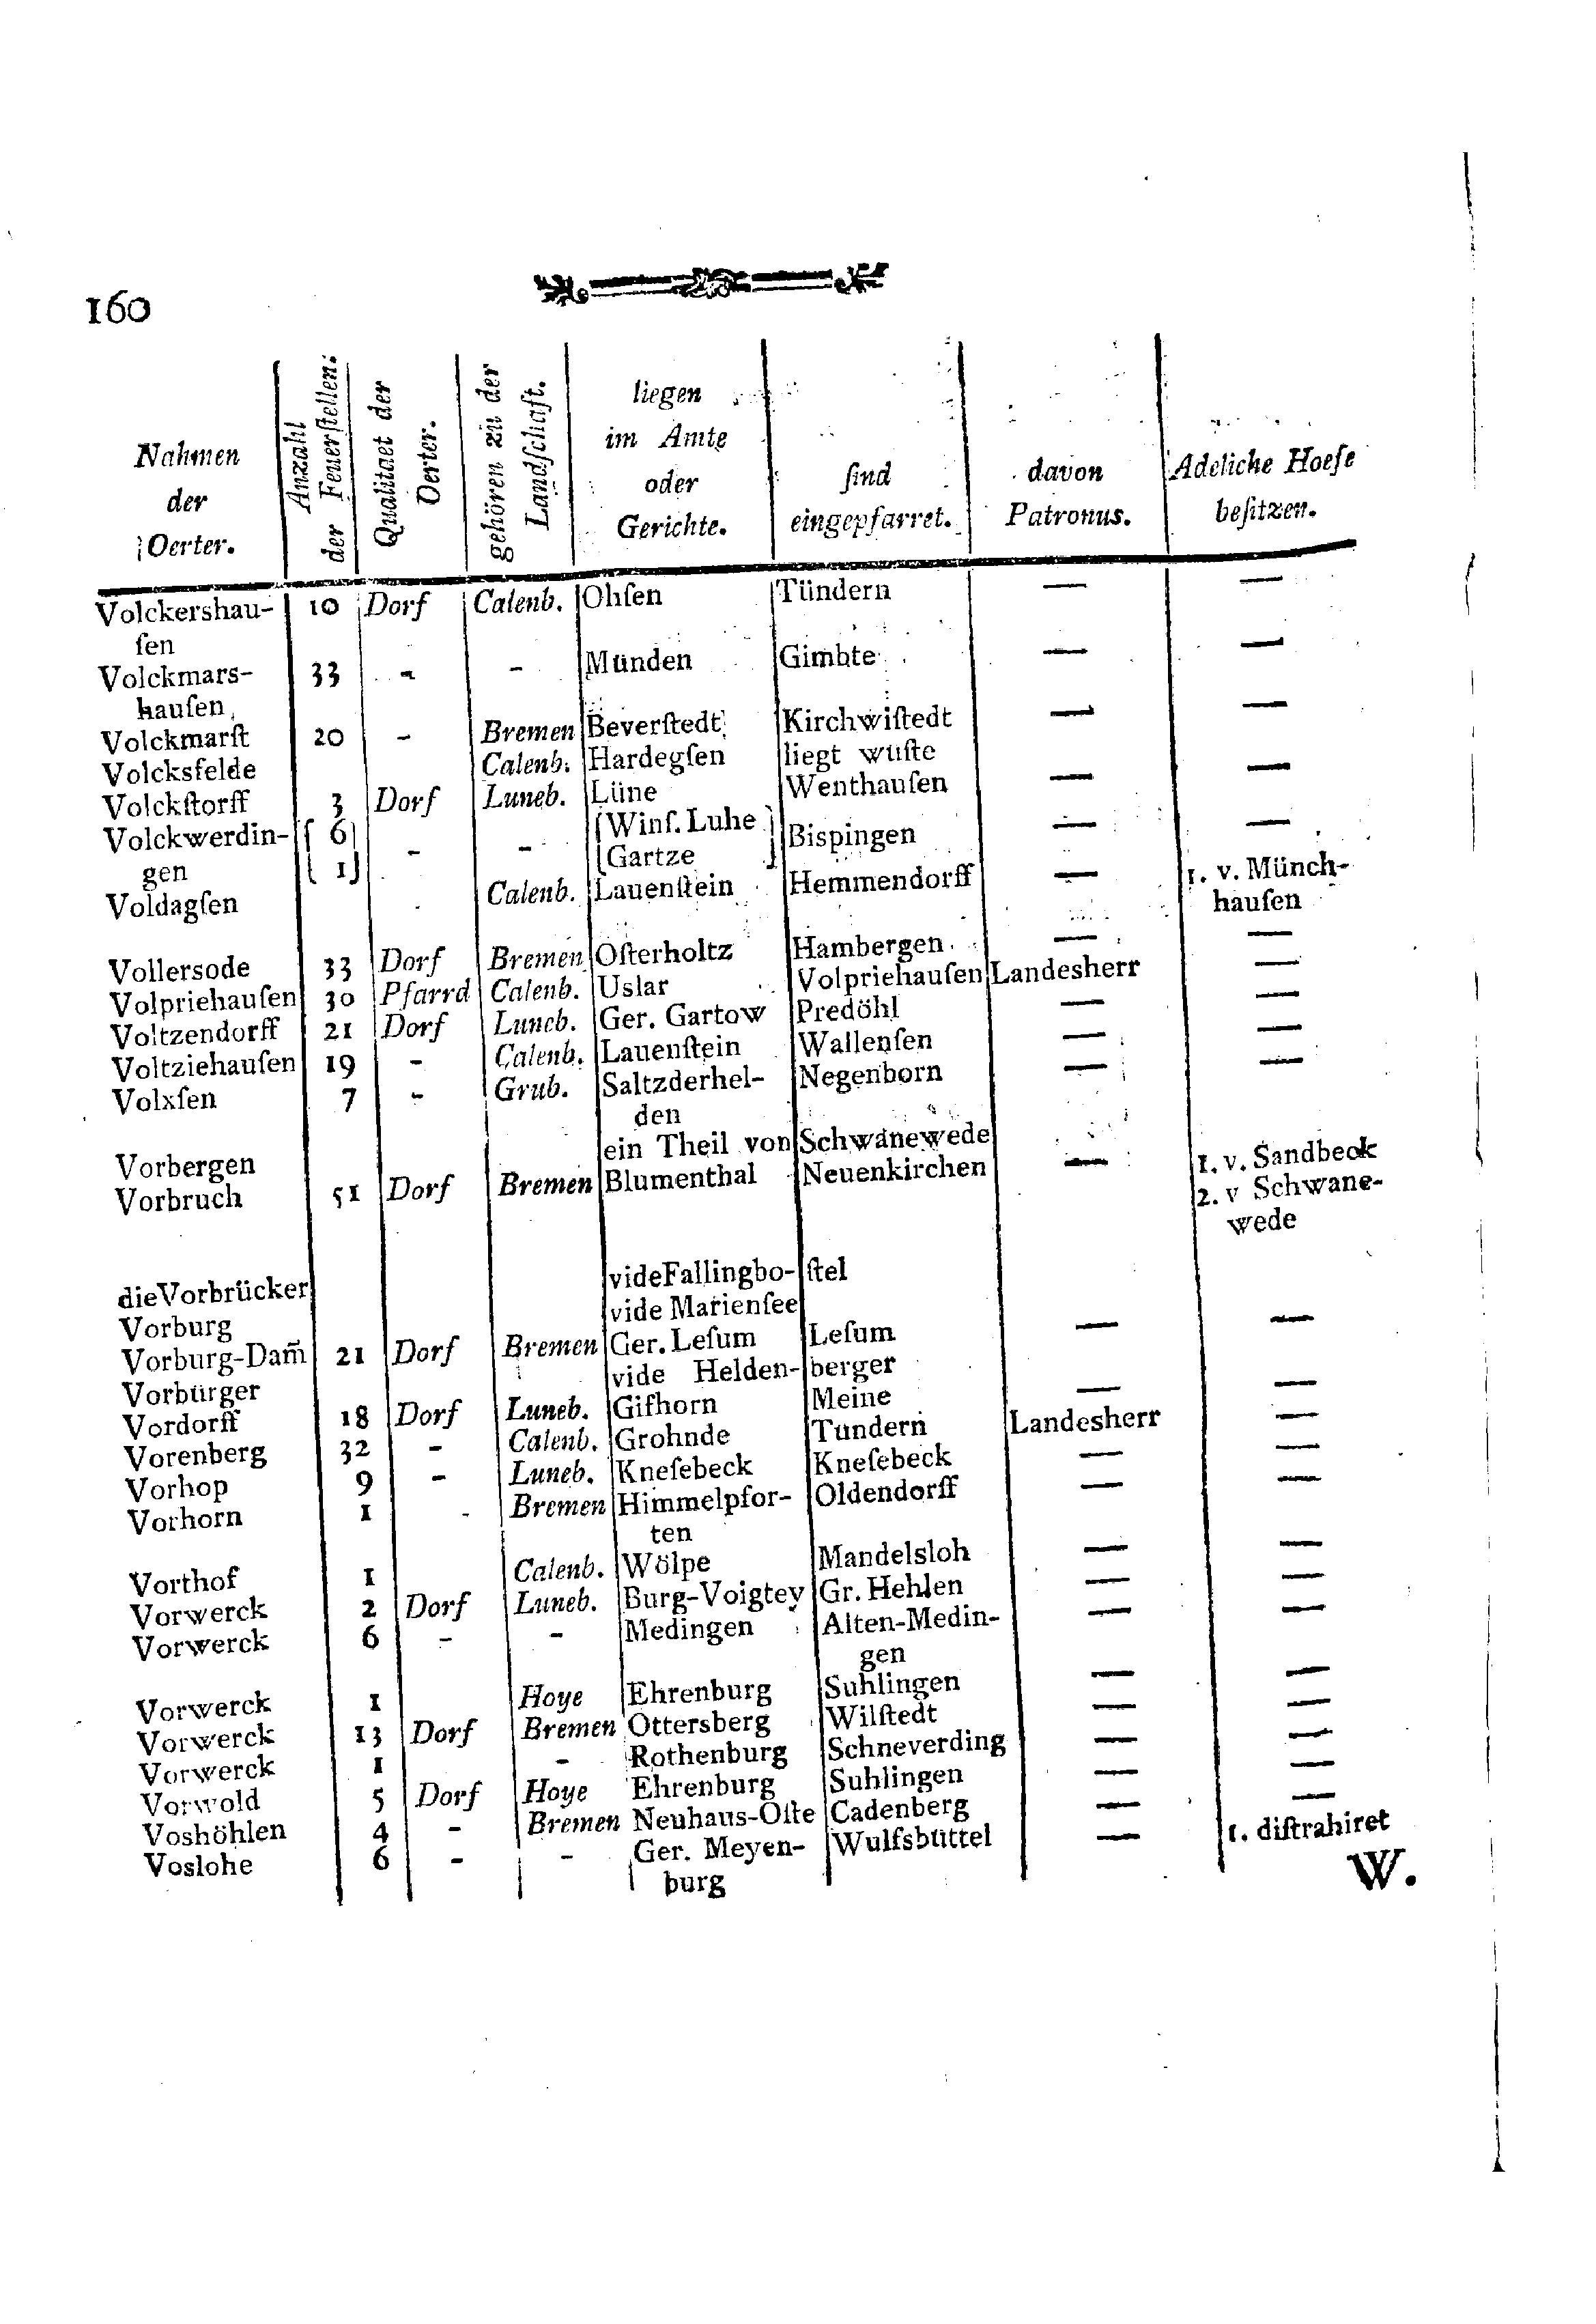 160
Nahmen der Oerter. Anzahl der Feuerſtellen. Qualitaet der Oerter. gehören zu der Landſchaft. liegen im Amte oder Gerichte. ſind eingepfarret. davon Patronus. Adeliche Hoefe beſitzen.
Volckershau- 10 Dorf Calenb. Ohſen Tündern — —
ſen
Volckmars- 33 - - Münden Gimbte — —
hauſen
Volckmarſt 20 - Bremen Beverſtedt Kirchwiſtedt — —
Volcksfelde Calenb. Hardegſen liegt wüſte
Volckſtorff 3 Dorf Luneb. Lüne Wenthauſen — —
Volckwerdin- { 6 } - - { Winſ. Luhe } Bispingen — —
gen { 1 } { Gartze }
Voldagſen Calenb. Lauenſtein Hemmendorff — 1. v. Münch-
hauſen
Vollersode 33 Dorf Bremen Oſterholtz Hambergen — —
Volpriehauſen 30 Pfarrd Calenb. Uslar Volpriehauſen Landesherr —
Voltzendorff 21 Dorf Luneb. Ger. Gartow Predöhl — —
Voltziehauſen 19 - Calenb. Lauenſtein Wallenſen — —
Volxſen 7 - Grub. Saltzderhel- Negenborn — —
den
Vorbergen ein Theil von Schwanewede
Vorbruch 51 Dorf Bremen Blumenthal Neuenkirchen — 1. v. Sandbeck
2. v Schwane-
wede
die Vorbrücker vide Fallingbo- ſtel
Vorburg vide Marienſee
Vorburg-Dam̃ 21 Dorf Bremen Ger. Leſum Leſum — —
Vorbürger vide Helden- berger
Vordorff 18 Dorf Luneb. Gifhorn Meine — —
Vorenberg 32 - Calenb. Grohnde Tündern Landesherr —
Vorhop 9 - Luneb. Kneſebeck Kneſebeck — —
Vorhorn 1 - Bremen Himmelpfor- Oldendorff — —
ten
Vorthof 1 Calenb. Wölpe Mandelsloh — —
Vorwerck 2 Dorf Luneb. Burg-Voigtey Gr. Hehlen — —
Vorwerck 6 - - Medingen Alten-Medin- — —
gen
Vorwerck 1 Hoye Ehrenburg Suhlingen — —
Vorwerck 13 Dorf Bremen Ottersberg Wilſtedt — —
Vorwerck 1 - Rothenburg Schneverding — —
Vorwold 5 Dorf Hoye Ehrenburg Suhlingen — —
Voshöhlen 4 - Bremen Neuhaus-Oſte Cadenberg — —
Voslohe 6 - - Ger. Meyen- Wulfsbüttel — 1. diſtrahiret
burg
W.